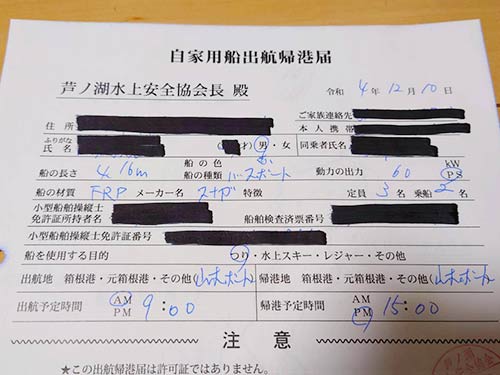 自家用船出航帰港届
芦ノ湖水上安全協会長 殿
令和 4 年 12 月 10 日
住 所
ご家族連絡先
本 人 携 帯
ふりがな
氏 名 才) 男・女 同乗者氏名
船の色
船の長さ 4.16m 船の種類 バスボート 動力の出力 60 kW PS
船の材質 FRP メーカー名 スナガ 特徴 定員 3 名 乗船 2 名
小型船舶操縦士
免許証所持者名 船舶検査済票番号
小型船舶操縦士免許証番号
船を使用する目的 つり・水上スキー・レジャー・その他
出航地 箱根港・元箱根港・その他(山木ボート) 帰港地 箱根港・元箱根港・その他(山木ボート)
出航予定時間 AM PM 9:00 帰港予定時間 AM PM 15:00
注 意
★この出航帰港届は許可証ではありません。